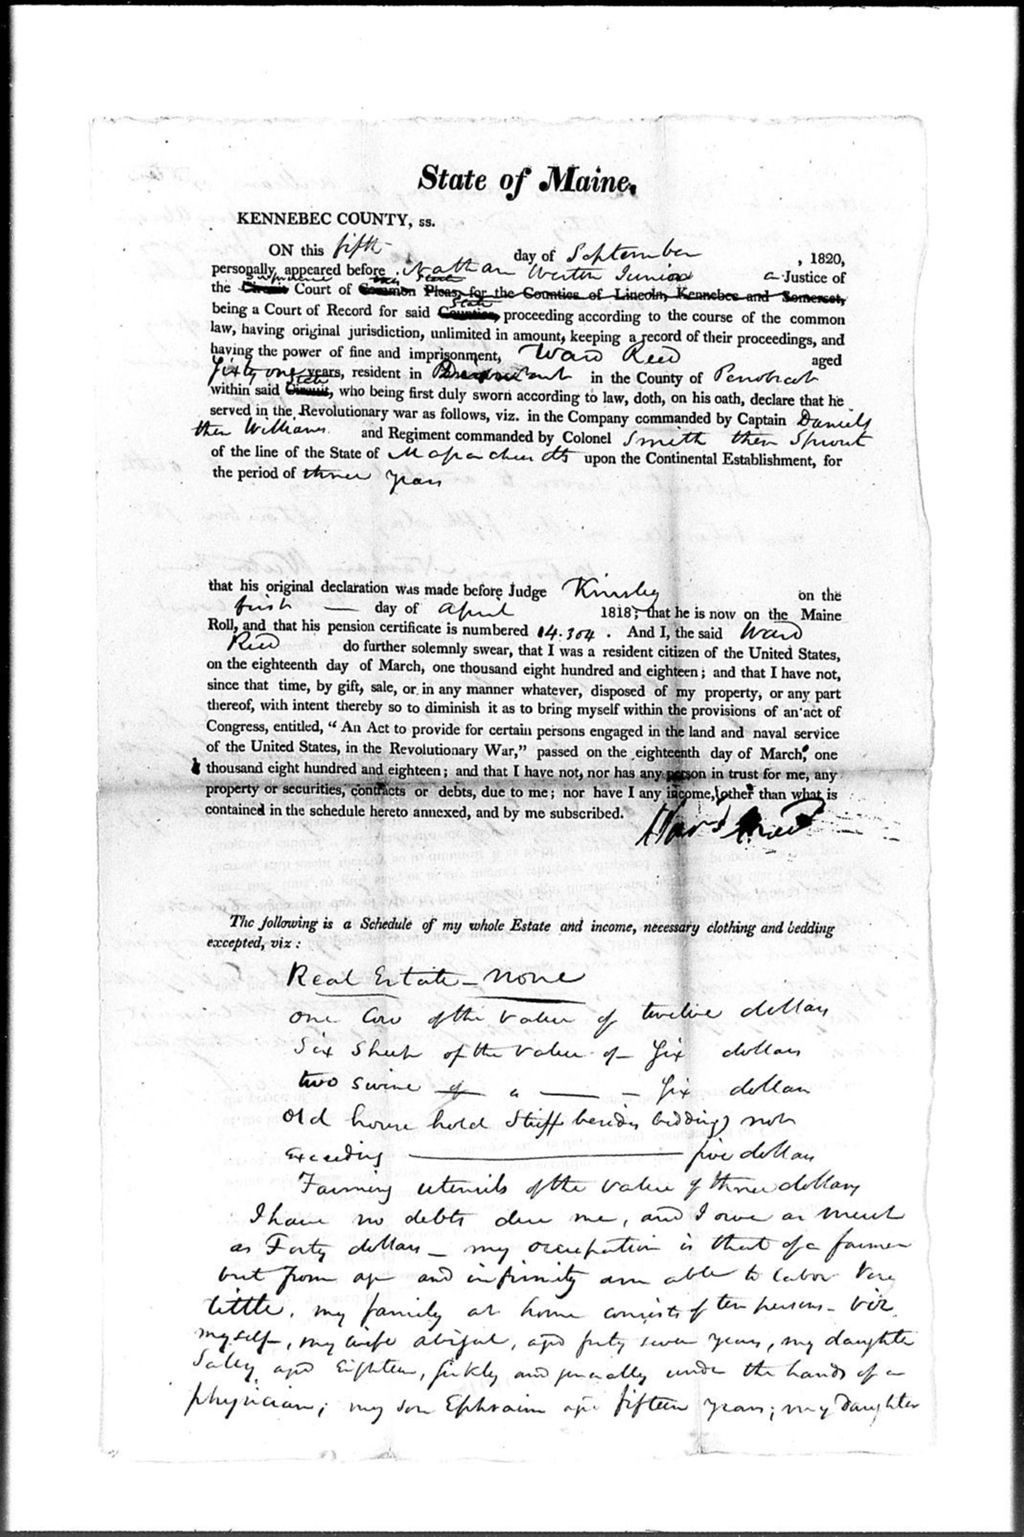 State of Maine.
KENNEBEC COUNTY, ss.
ON this fifth day of September , 1820,
personally appeared before Nathan Weston Junior a Justice of
the Circuit Court of Common Pleas, for the Counties of Lincoln, Kennebec and Somerset,
being a Court of Record for said State Counties, proceeding according to the course of the common
law, having original jurisdiction, unlimited in amount, keeping a record of their proceedings, and
having the power of fine and imprisonment, Ward Reed aged
Sixty one years, resident in in the County of Penobscot
within said State Circuit, who being first duly sworn according to law, doth, on his oath, declare that he
served in the Revolutionary war as follows, viz. in the Company commanded by Captain Daniels
then Williams and Regiment commanded by Colonel Smith then Sprout
of the line of the State of Massachusetts upon the Continental Establishment, for
the period of three years
that his original declaration was made before Judge Kinsley on the
first — day of April 1818; that he is now on the Maine
Roll, and that his pension certificate is numbered 14.304 . And I, the said Ward
Reed do further solemnly swear, that I was a resident citizen of the United States,
on the eighteenth day of March, one thousand eight hundred and eighteen; and that I have not,
since that time, by gift, sale, or in any manner whatever, disposed of my property, or any part
thereof, with intent thereby so to diminish it as to bring myself within the provisions of an act of
Congress, entitled, "An Act to provide for certain persons engaged in the land and naval service
of the United States, in the Revolutionary War," passed on the eighteenth day of March, one
thousand eight hundred and eighteen; and that I have not, nor has any person in trust for me, any
property or securities, contracts or debts, due to me; nor have I any income, other than what is
contained in the schedule hereto annexed, and by me subscribed. Ward Reed
The following is a Schedule of my whole Estate and income, necessary clothing and bedding
excepted, viz:
Real Estate – none
one Cow of the value of twelve dollars
Six Sheep of the value of – Six dollars
two swine of a — – Six dollars
old house hold Stuff besides bedding not
exceeding — five dollars
Farming utensils of the value of three dollars
I have no debts due me, and I owe as much
as Forty dollars – my occupation is that of a farmer
but from age and infirmity am able to labor very
little. my family at home consists of ten persons – viz
myself –, my wife abigal, aged forty seven years, my daughter
Salley aged Eighteen, sickly and generally under the hands of a
physician; my son Ephraim age fifteen years; my Daughter